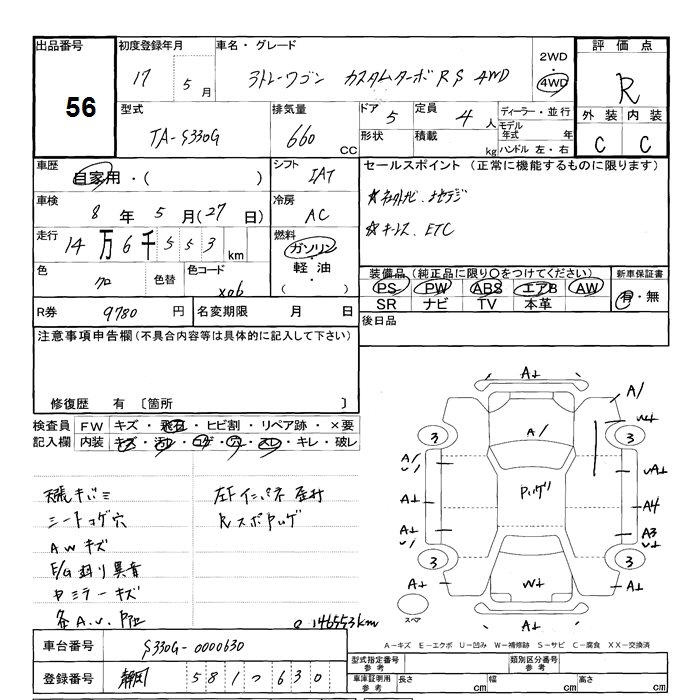 出品番号 初度登録年月 車名・グレード 2WD ・ 4WD 評価点
56
17 5月 アトレーワゴン カスタムターボRS 4WD R
型式 排気量 ドア 5 定員 4人 ディーラー・並行 外装 内装
TA-S330G 660 CC 形状 積載 kg モデル年式 年 C C
ハンドル 左・右
車歴 自家用・( ) シフト IAT セールスポイント (正常に機能するものに限ります)
車検 8年 5月(27日) 冷房 AC ☆社外ナビ.地デジ
☆キーレス. ETC
走行 14万6千553km 燃料 ガソリン・軽油・( )
色 クロ 色替 色コード X06 装備品 (純正品に限り○をつけてください) 新車保証書
PS PW ABS エアB AW 有・無
SR ナビ TV 本革
R券 9780円 名変期限 月 日 後日品
注意事項申告欄(不具合内容等は具体的に記入して下さい)
修復歴 有 〔箇所 〕
検査員 FW キズ・飛石・ヒビ割・リペア跡・×要
記入欄 内装 キズ・汚レ・コゲ・穴・スレ・キレ・破レ
天張キバミ 左Fインパネ 歪対
シートコゲ穴 Rスポアゲ
AWキズ
E/G廻り異音
ドミラーキズ
各A.U.
@ 146553km
A↓
A/
A/
W↓
3 3
A/
U/
UA↓
A↓ A4
A↓
U/
A3
U/
3 3
A↓ W↓ A↓
A↓
スペア
A-キズ E-エクボ U-凹み W-補修跡 S-サビ C-腐食 XX-交換済
車台番号 S330G-0000630 型式指定番号 参考 類別区分番号 参考
登録番号 静岡 581つ630 車庫証明用 参考 長さ cm 幅 cm 高さ cm